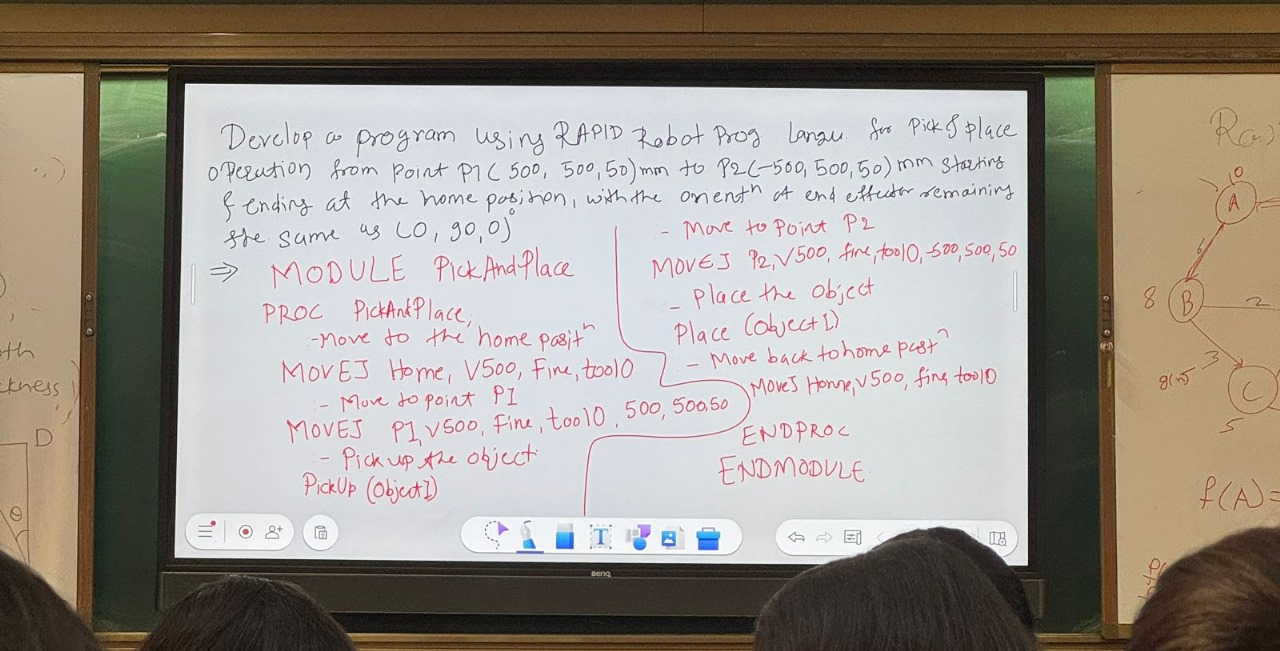 Develop a program using RAPID Robot Prog Langu for Pick & place
operation from point P1 (500, 500, 50) mm to P2 (-500, 500, 50) mm starting
& ending at the home position, with the orientⁿ of end effector remaining
the same as (0, 90, 0)°
⇒ MODULE PickAndPlace
PROC PickAndPlace,
- Move to the home positⁿ
MOVEJ Home, V500, Fine, tool0
- Move to point P1
MOVEJ P1, V500, Fine, tool0, 500, 500, 50
- Pick up the object
PickUp (Object1)
- Move to Point P2
MOVEJ P2, V500, fine, tool0, -500, 500, 50
- Place the Object
Place (Object1)
- Move back to home postⁿ
MoveJ Home, V500, fine, tool0
ENDPROC
ENDMODULE
BenQ
oth
ckness)
D
θ
10
A
8
B
2
3
C
5
f(A)=